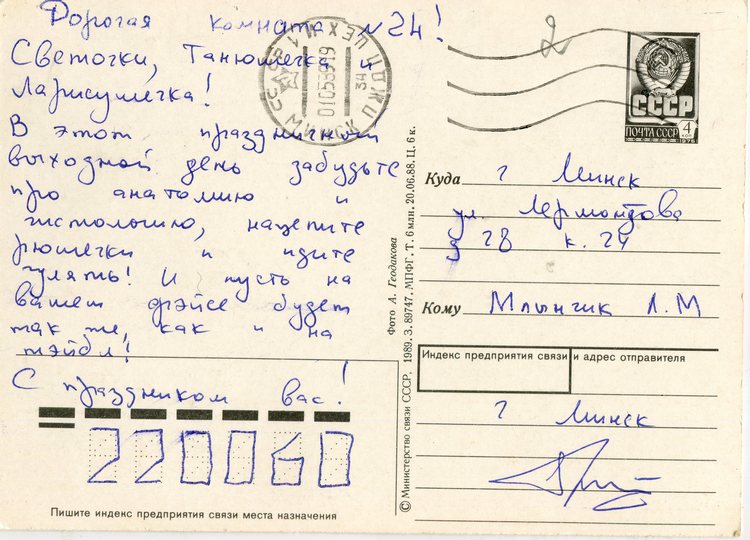 Дорогая комната №24!
Светочки, Танюшечка и
Ларисушечка!
В этот праздничный
выходной день забудьте
про анатомию и
гистологию, нацепите
рюшечки и идите
гулять! И пусть на
вашем фэйсе будет
так же, как и на
тэйбл!
С праздником вас!
220060
Пишите индекс предприятия связи места назначения
МИНСК
010589 19
СССР
ПОЧТА СССР 4 КОП
1976
© Министерство связи СССР. 1989. З. 89747. МПФГ. Т. 6 млн. 20.06.88. Ц. 6 к.
Фото А. Геодакова
Куда г Минск
ул. Лермонтова
28 к. 24
Кому Млынчик Л.М
Индекс предприятия связи и адрес отправителя
г Минск